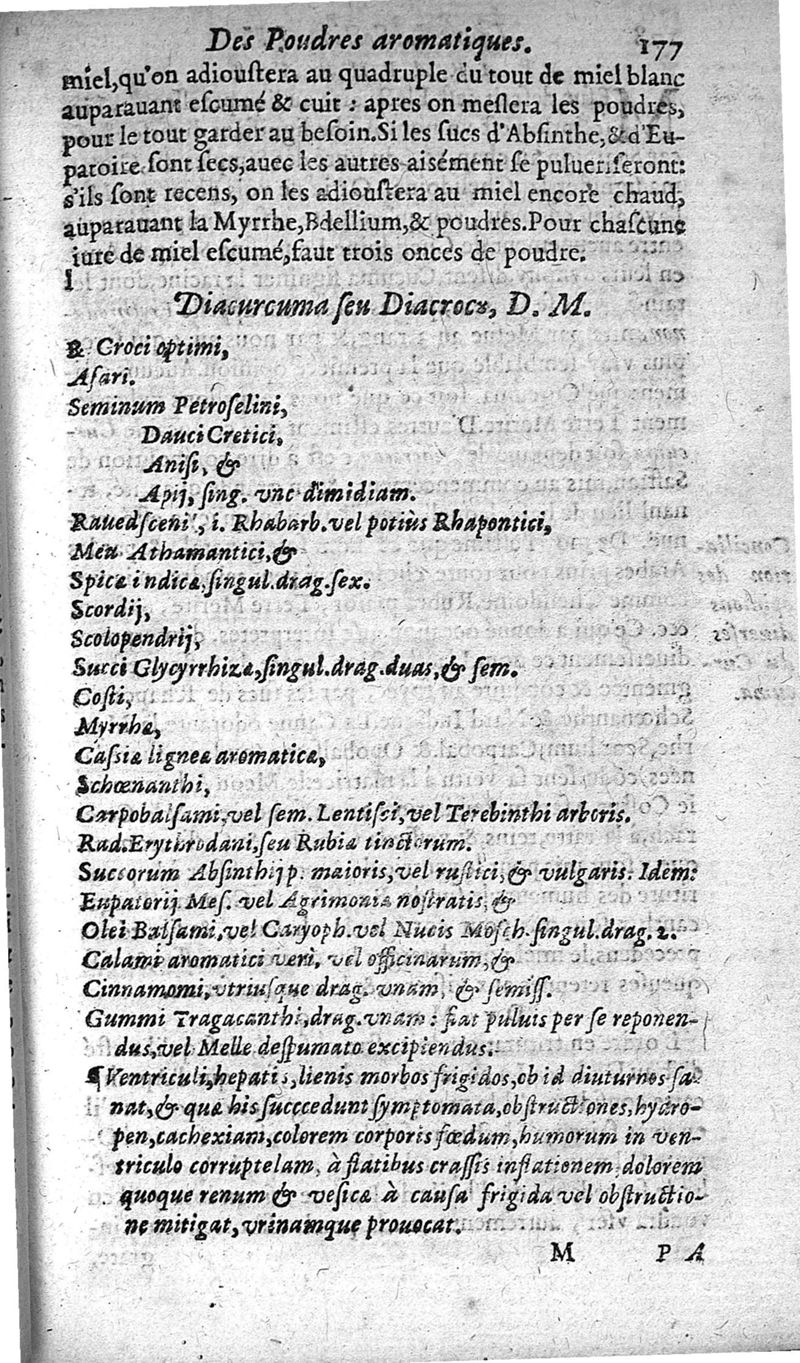 Des Poudres aromatiques. 177
miel, qu'on adiouſtera au quadruple du tout de miel blanc
auparauant eſcumé & cuit : apres on meſlera les poudres,
pour le tout garder au beſoin. Si les ſucs d'Abſinthe, & d'Eu-
patoire ſont ſecs, auec les autres aisément ſe puluerſeront:
s'ils ſont recens, on les adiouſtera au miel encore chaud,
auparauant la Myrrhe, Bdellium, & poudres. Pour chaſcune
liure de miel eſcumé, faut trois onces de poudre.
Diacurcuma ſeu Diacrocu, D. M.
℞ Croci optimi,
Aſari.
Seminum Petroſelini,
Dauci Cretici,
Aniſi, &
Apij, ſing. vnc dimidiam.
Rauedſceni, i. Rhabarb. vel potiùs Rhapontici,
Meu Athamantici, &
Spicæ indicæ. ſingul. drag. ſex.
Scordij,
Scolopendrij,
Succi Glycyrrhizæ, ſingul. drag. duas, & ſem.
Coſti,
Myrrhæ,
Caſſiæ ligneæ aromaticæ,
Schœnanthi,
Carpobalſami, vel ſem. Lentiſci, vel Terebinthi arboris.
Rad. Erythrodani, ſeu Rubiæ tinctorum.
Succorum Abſinthij p. maioris, vel ruſtici, & vulgaris. Idem:
Eupatorij Meſ. vel Agrimoniæ noſtratis, &
Olei Balſami, vel Caryoph. vel Nucis Moſch. ſingul. drag. 2.
Calami aromatici veri, vel officinarum, &
Cinnamomi, vtriuſque drag. vnam, & ſemiſſ.
Gummi Tragacanthi, drag. vnam : fiat puluis per ſe reponen-
dus, vel Melle deſpumato excipiendus.
¶ Ventriculi, hepatis, lienis morbos frigidos, ob id diuturnos ſa-
nat, & quæ his ſucccedunt ſymptomata, obſtructiones, hydro-
pen, cachexiam, colorem corporis fœdum, humorum in ven-
triculo corruptelam, à flatibus craſſis inflationem dolorem
quoque renum & veſicæ à cauſa frigida vel obſtructio-
ne mitigat, vrinamque prouocat.
M P A